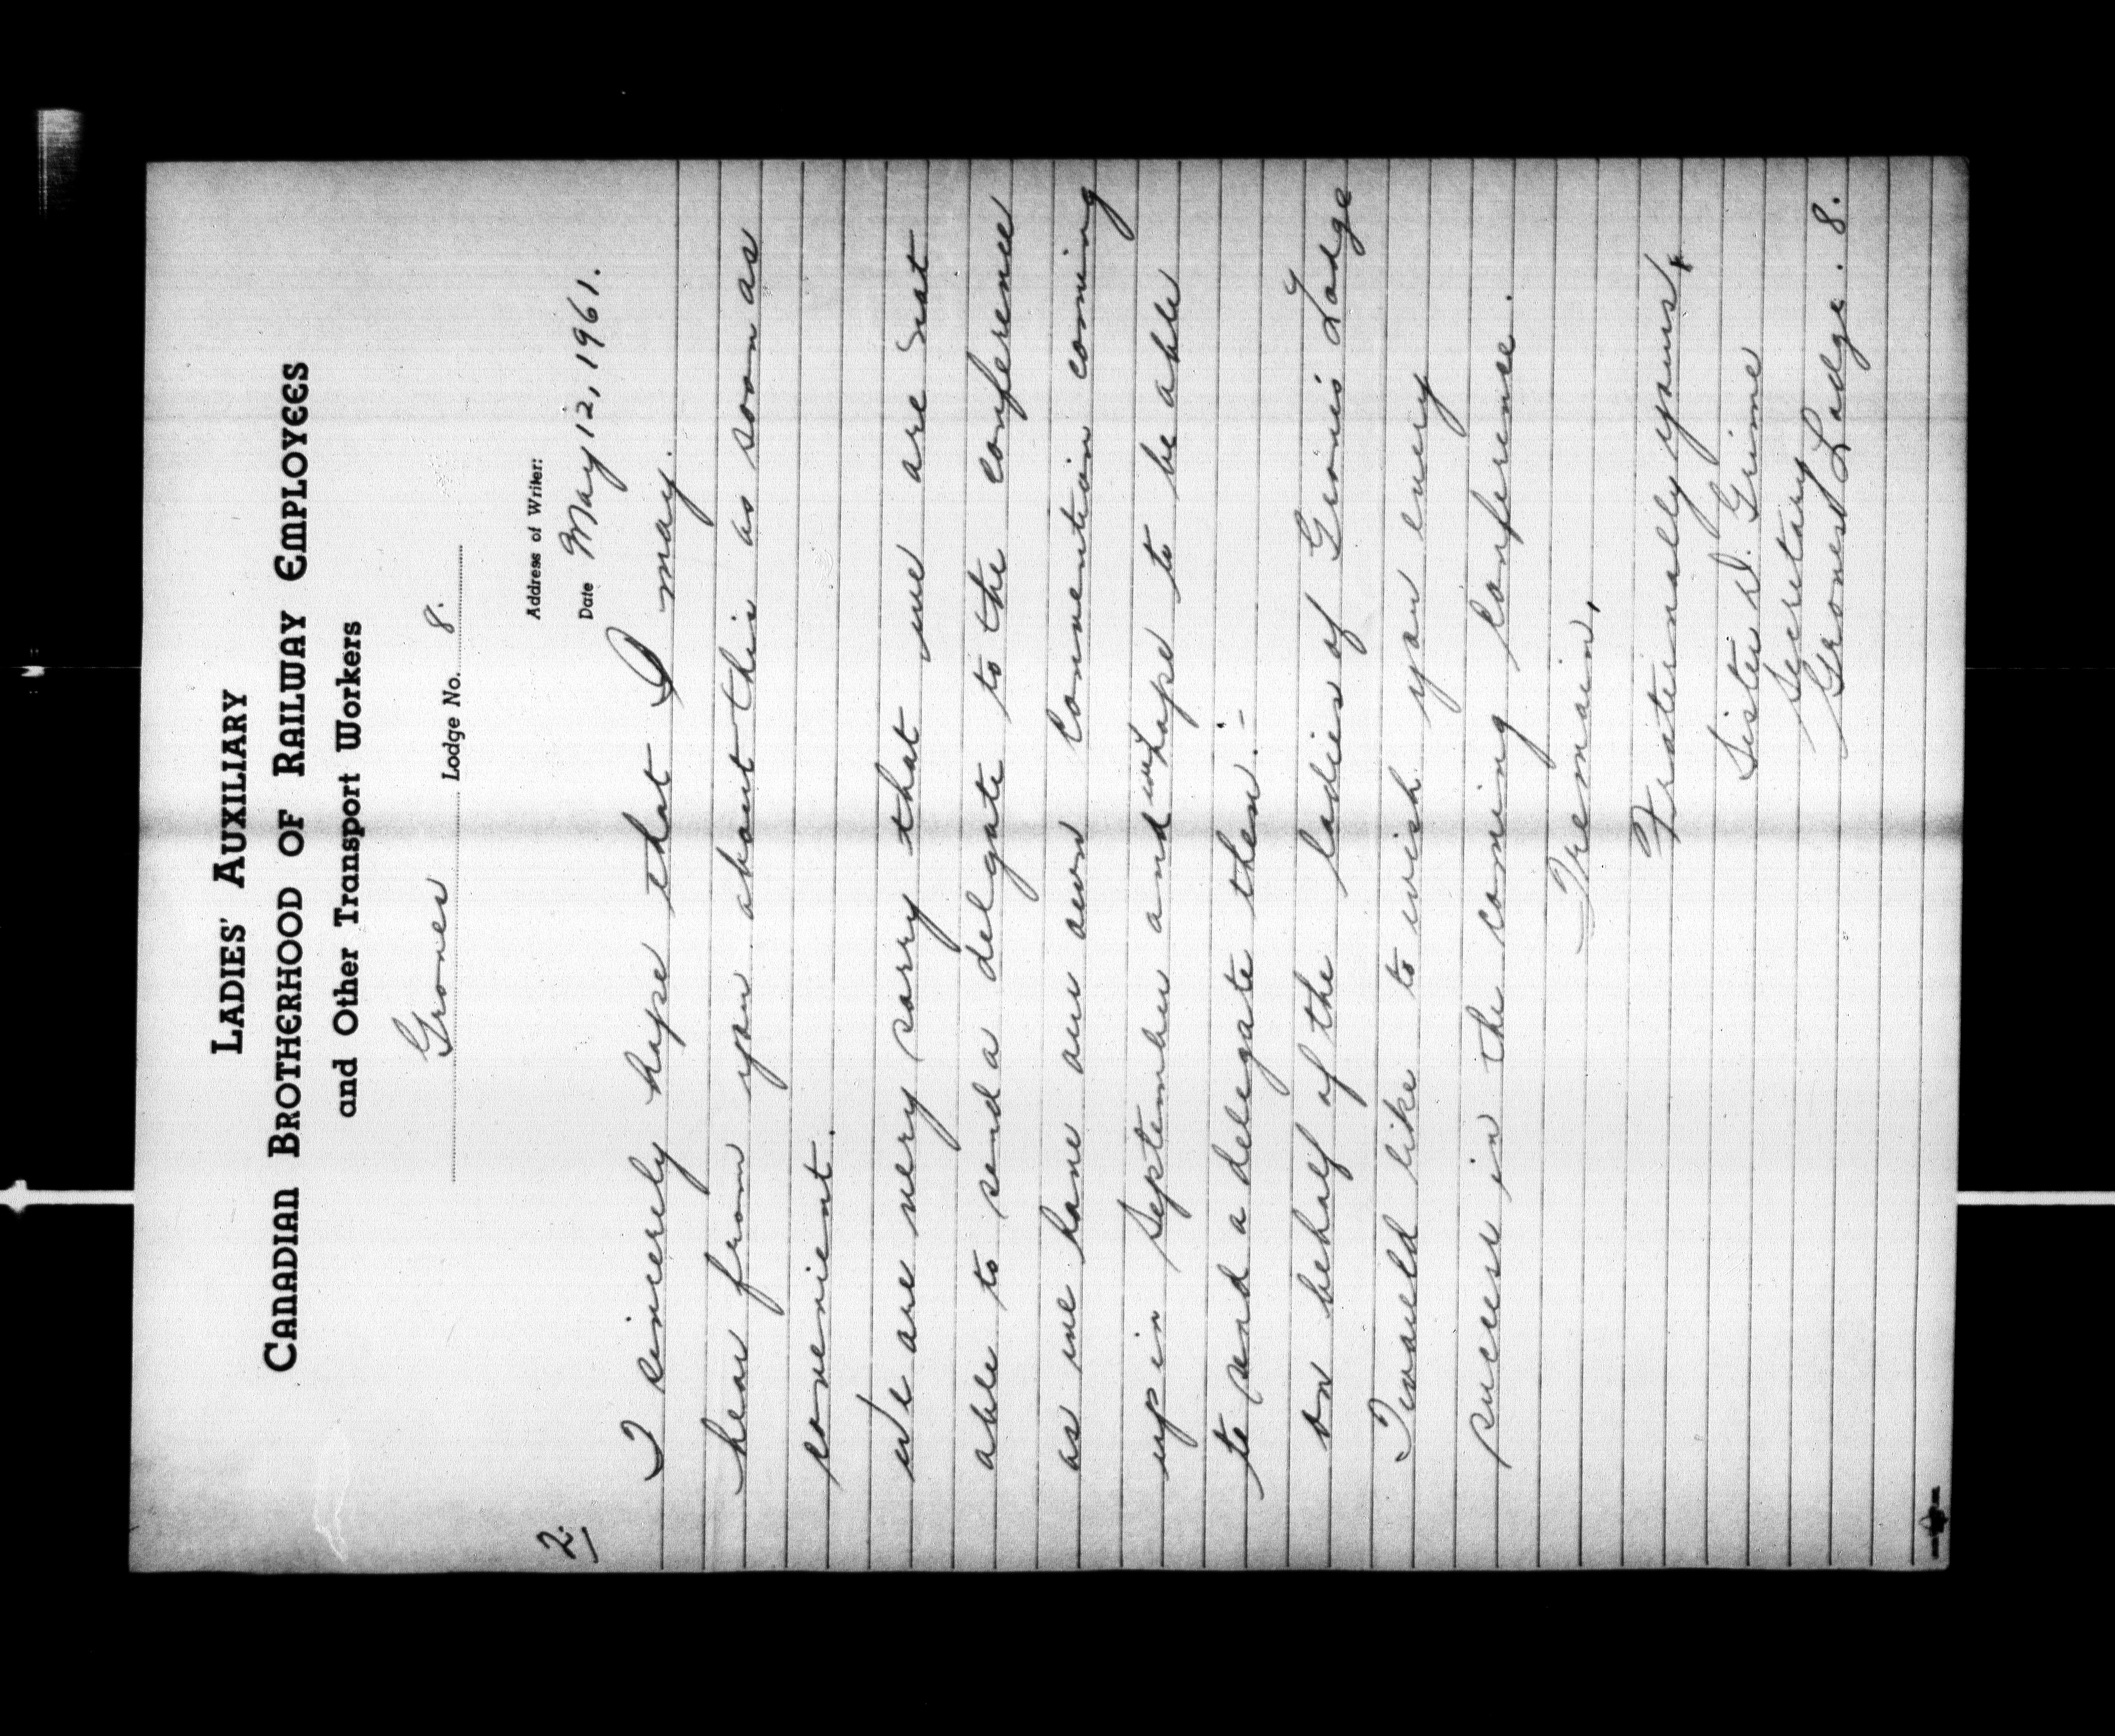 LADIES' AUXILIARY
CANADIAN BROTHERHOOD OF RAILWAY EMPLOYEES
and Other Transport Workers
Grones Lodge No. 8.
Address of Writer:
2.
Date May 12, 1961.
I sincerely hope that I may
hear from you about this as soon as
convenient.
We are very sorry that we are not
able to send a delgate to the conference
as we have our own Convention coming
up in September and we hope to be able
to send a delegate then.-
On behalf of the ladies of Grones Lodge
I would like to wish you every
success in the coming Conference.
I remain,
Fraternally yours,
Sister D. Grime
Secretary
Grones Lodge. 8.